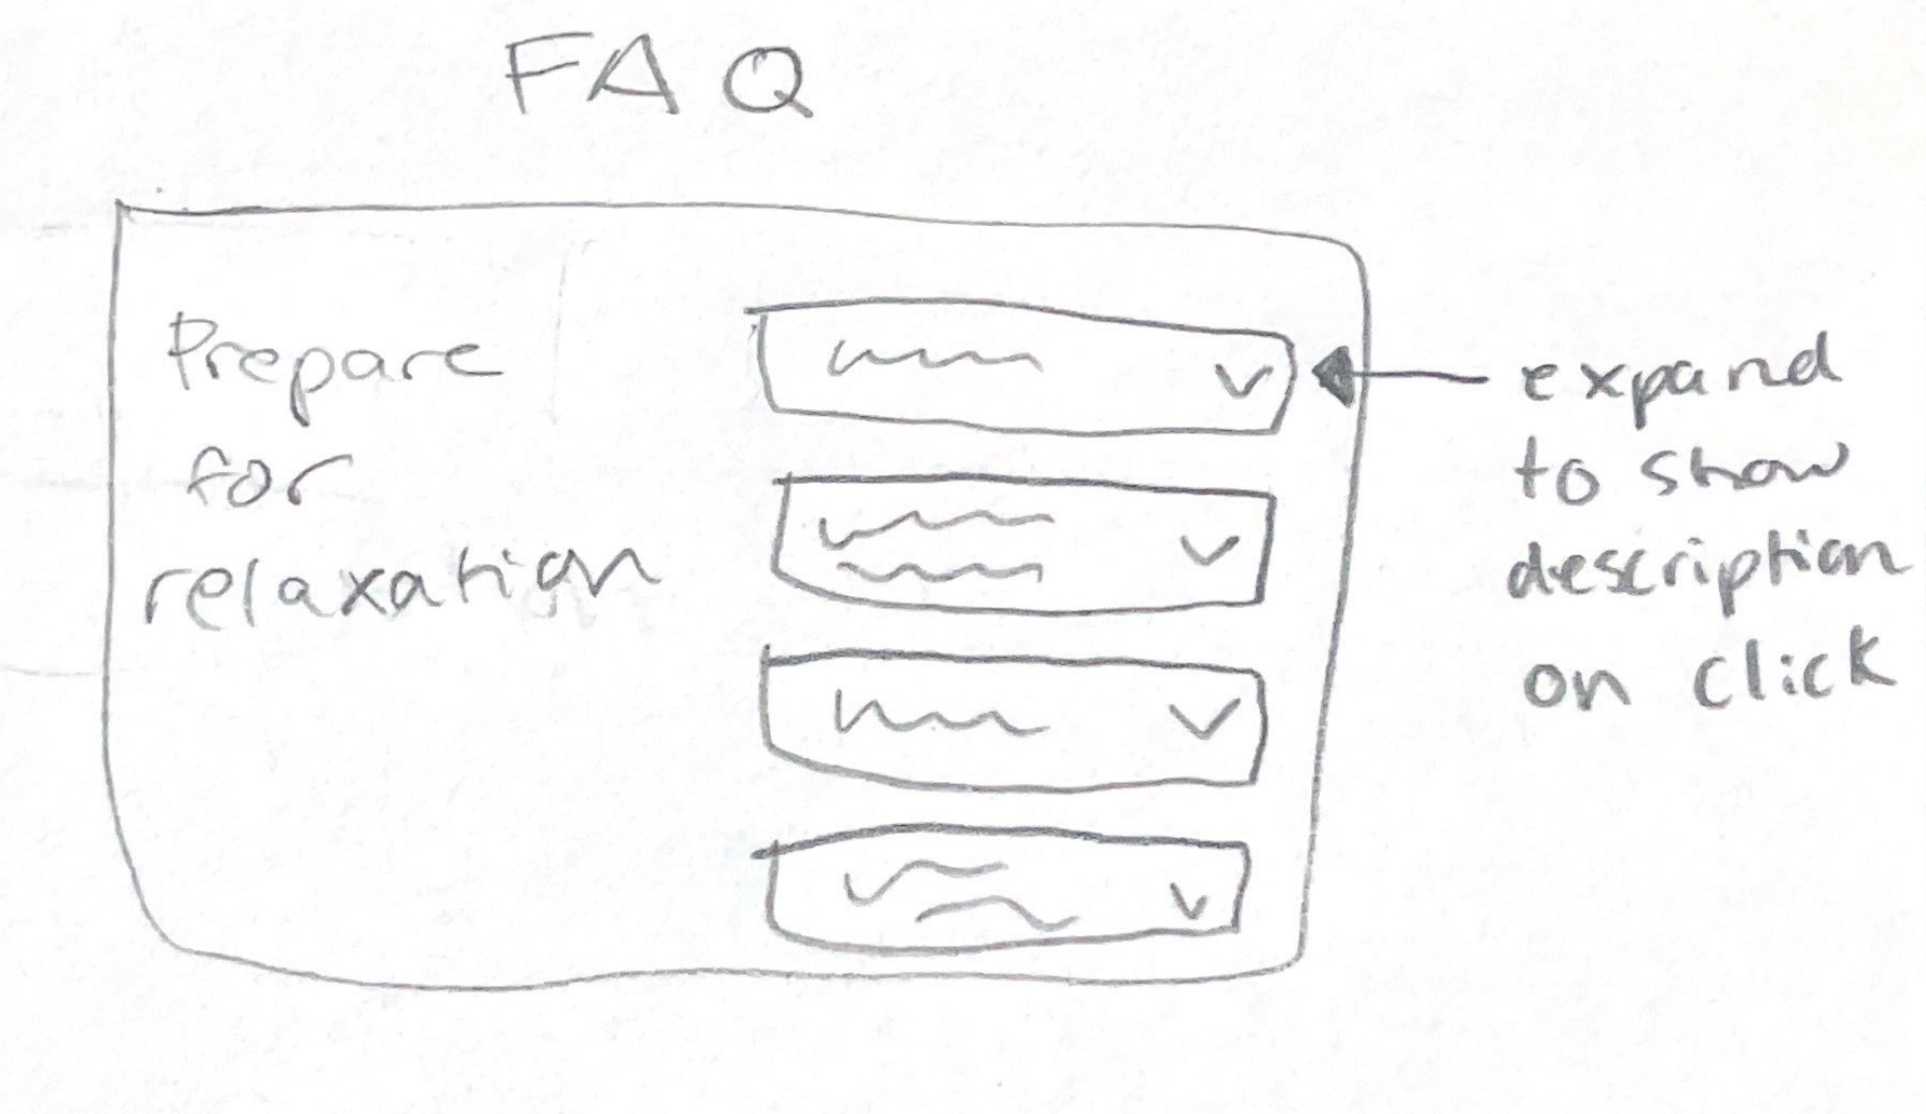 FAQ
Prepare
for
relaxation
expand
to show
description
on click